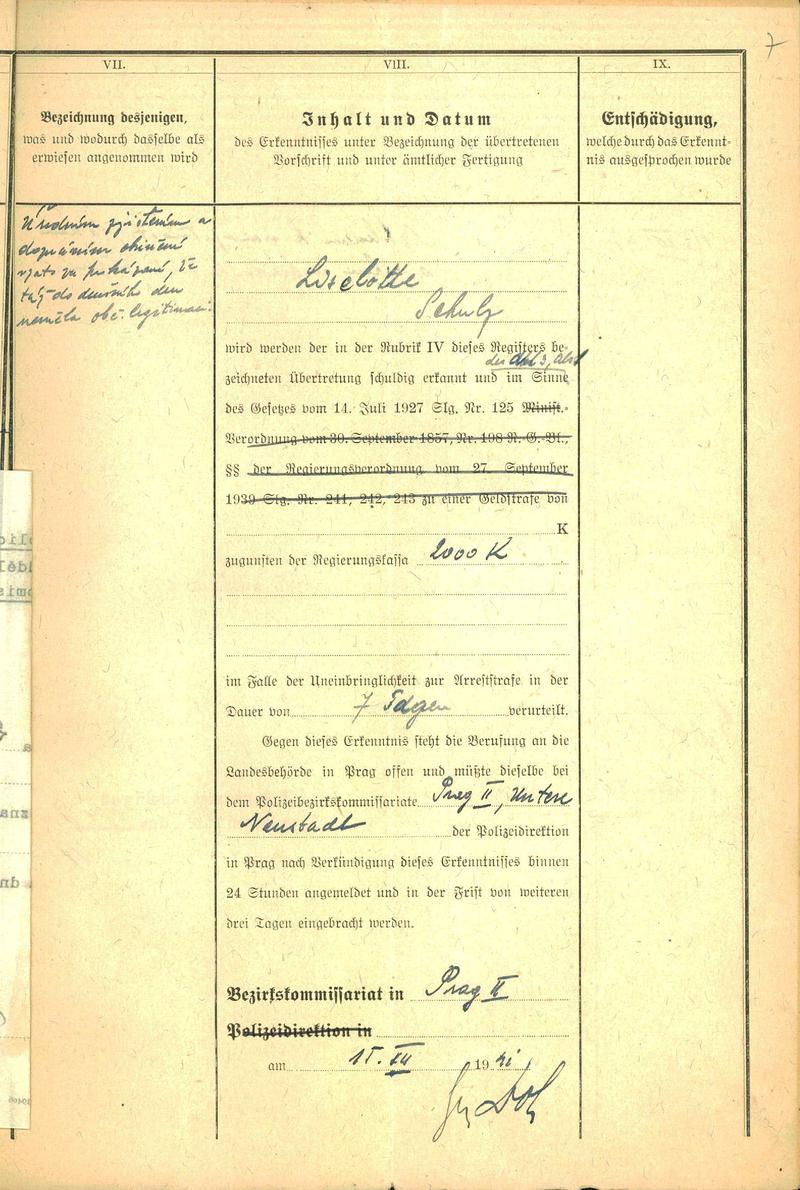 7
VII.
VIII.
IX.
Bezeichnung desjenigen,
was und wodurch dasselbe als
erwiesen angenommen wird
Inhalt und Datum
des Erkenntnisses unter Bezeichnung der übertretenen
Vorschrift und unter ämtlicher Fertigung
Entschädigung,
welche durch das Erkennt-
nis ausgesprochen wurde
Úředním zjištěním a
doznáním obviněné
vzato za prokázané, že
táž do dnešního dne
neměla obč. legitimaci.
Liselotte
Schulz
wird werden der in der Rubrik IV dieses Registers be-
zeichneten Übertretung schuldig erkannt und im Sinne
des Gesetzes vom 14. Juli 1927 Slg. Nr. 125 Minist.-
Verordnung vom 30. September 1857, Nr. 198 R.-G.-Bl.,
§§ der Regierungsverordnung vom 27. September
1939 Slg. Nr. 241, 242, 243 zu einer Geldstrafe von
K
zugunsten der Regierungskassa 2000 K
im Falle der Uneinbringlichkeit zur Arreststrafe in der
Dauer von 7 Tagen verurteilt.
Gegen dieses Erkenntnis steht die Berufung an die
Landesbehörde in Prag offen und müßte dieselbe bei
dem Polizeibezirkskommissariate Prag II, Untere
Neustadt der Polizeidirektion
in Prag nach Verkündigung dieses Erkenntnisses binnen
24 Stunden angemeldet und in der Frist von weiteren
drei Tagen eingebracht werden.
Bezirkskommissariat in Prag II
Polizeidirektion in
am 15. III 1941